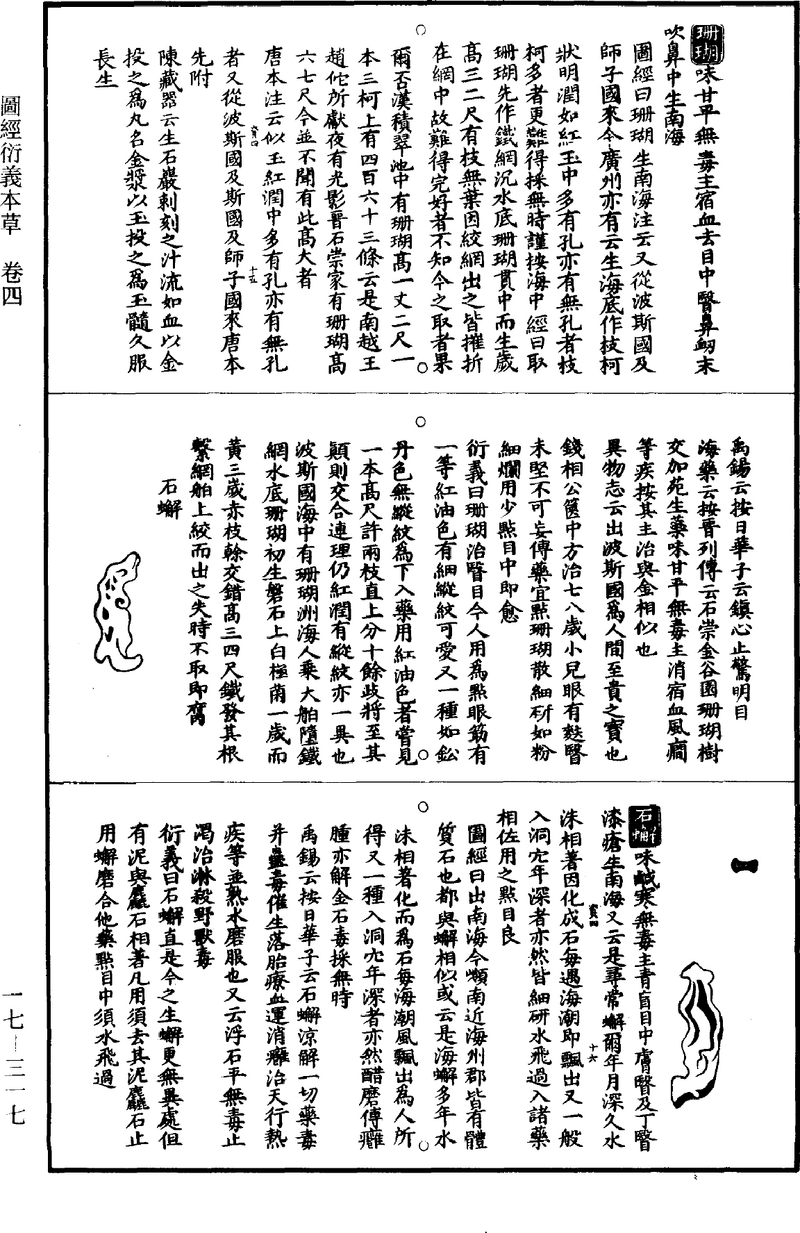 圖經衍義本草　卷四
珊瑚味甘平無毒主宿血去目中瞖鼻衂末
吹鼻中生南海
圖經曰珊瑚生南海注云又從波斯國及
師子國來今廣州亦有云生海底作枝柯
狀明潤如紅玉中多有孔亦有無孔者枝
柯多者更難得採無時謹按海中經曰取
珊瑚先作鐵網沉水底珊瑚貫中而生歲
高三二尺有枝無葉因絞網出之皆摧折
在網中故難得完好者不知今之取者果
爾否漢積翠池中有珊瑚高一丈二尺一
本三柯上有四百六十三條云是南越王
趙佗所獻夜有光影晉石崇家有珊瑚高
六七尺今並不聞有此高大者
唐本注云似玉紅潤中多有孔亦有無孔
者又從波斯國及斯國及師子國來唐本
先附
陳藏器云生石巖剌刻之汁流如血以金
投之爲丸名金漿以玉投之爲玉髓久服
長生
禹錫云按日華子云鎮心止驚明目
海藥云按晉列傳云石崇金谷園珊瑚樹
交加苑生藥味甘平無毒主消宿血風癇
等疾按其主治與金相似也
異物志云出波斯國爲人間至貴之寶也
錢相公篋中方治七八歲小兒眼有麩瞖
未堅不可妄傅藥宜點珊瑚散細研如粉
細爛用少點目中即愈
衍義曰珊瑚治瞖目今人用爲點眼筯有
一等紅油色有細縱紋可愛又一種如鈆
丹色無縱紋爲下入藥用紅油色者嘗見
一本高尺許兩枝直上分十餘歧將至其
顛則交合連理仍紅潤有縱紋亦一異也
波斯國海中有珊瑚洲海人乗大舶墮鐵
網水底珊瑚初生磐石上白極菌一歲而
黃三歲赤枝榦交錯高三四尺鐵發其根
繫網舶上絞而出之失時不取即腐
石蠏
石蠏味鹹寒無毒主青盲目中膚瞖及丁瞖
漆瘡生南海又云是尋常蠏爾年月深久水
沫相著因化成石每遇海潮即飄出又一般
入洞穴年深者亦然皆細研水飛過入諸藥
相佐用之點目良
圖經曰出南海今嶺南近海州郡皆有體
質石也都與蠏相似或云是海蠏多年水
沫相著化而爲石每海潮風飄出爲人所
得又一種入洞穴年深者亦然醋磨傅癰
腫亦解金石毒採無時
禹錫云按日華子云石蠏涼解一切藥毒
并蠱毒催生落胎療血運消癰治天行熱
疾等並熟水磨服也又云浮石平無毒止
渴治淋殺野獸毒
衍義曰石蠏直是今之生蠏更無異處但
有泥與麤石相著凡用須去其泥麤石止
用蠏磨合他藥點目中須水飛過
一七—三一七